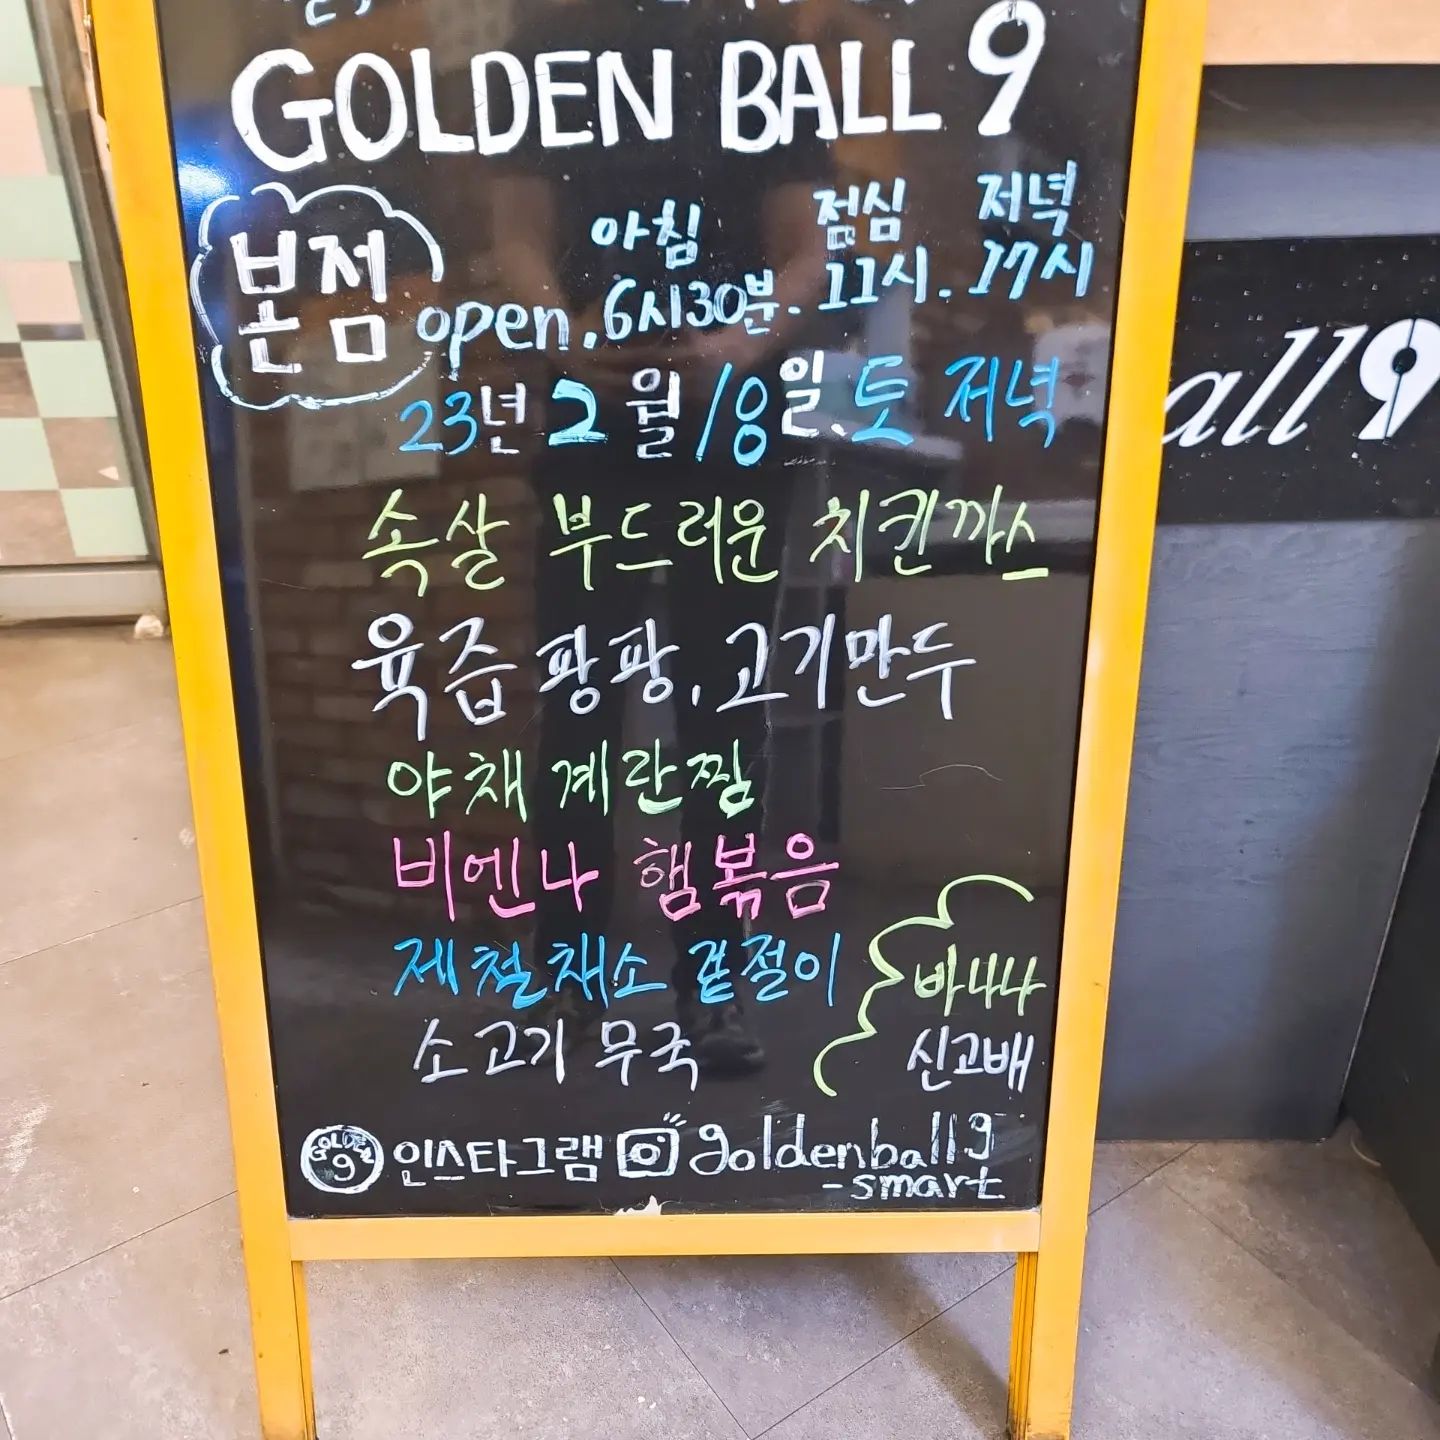 GOLDEN BALL 9
본점
아침 점심 저녁
open. 6시30분. 11시. 17시
23년 2월 18일. 토 저녁
속살 부드러운 치킨까스
육즙 팡팡. 고기만두
야채 계란찜
비엔나 햄볶음
제철채소 겉절이
소고기 무국
바나나
신고배
GOLDEN 9 인스타그램 goldenball9
-smart
all9